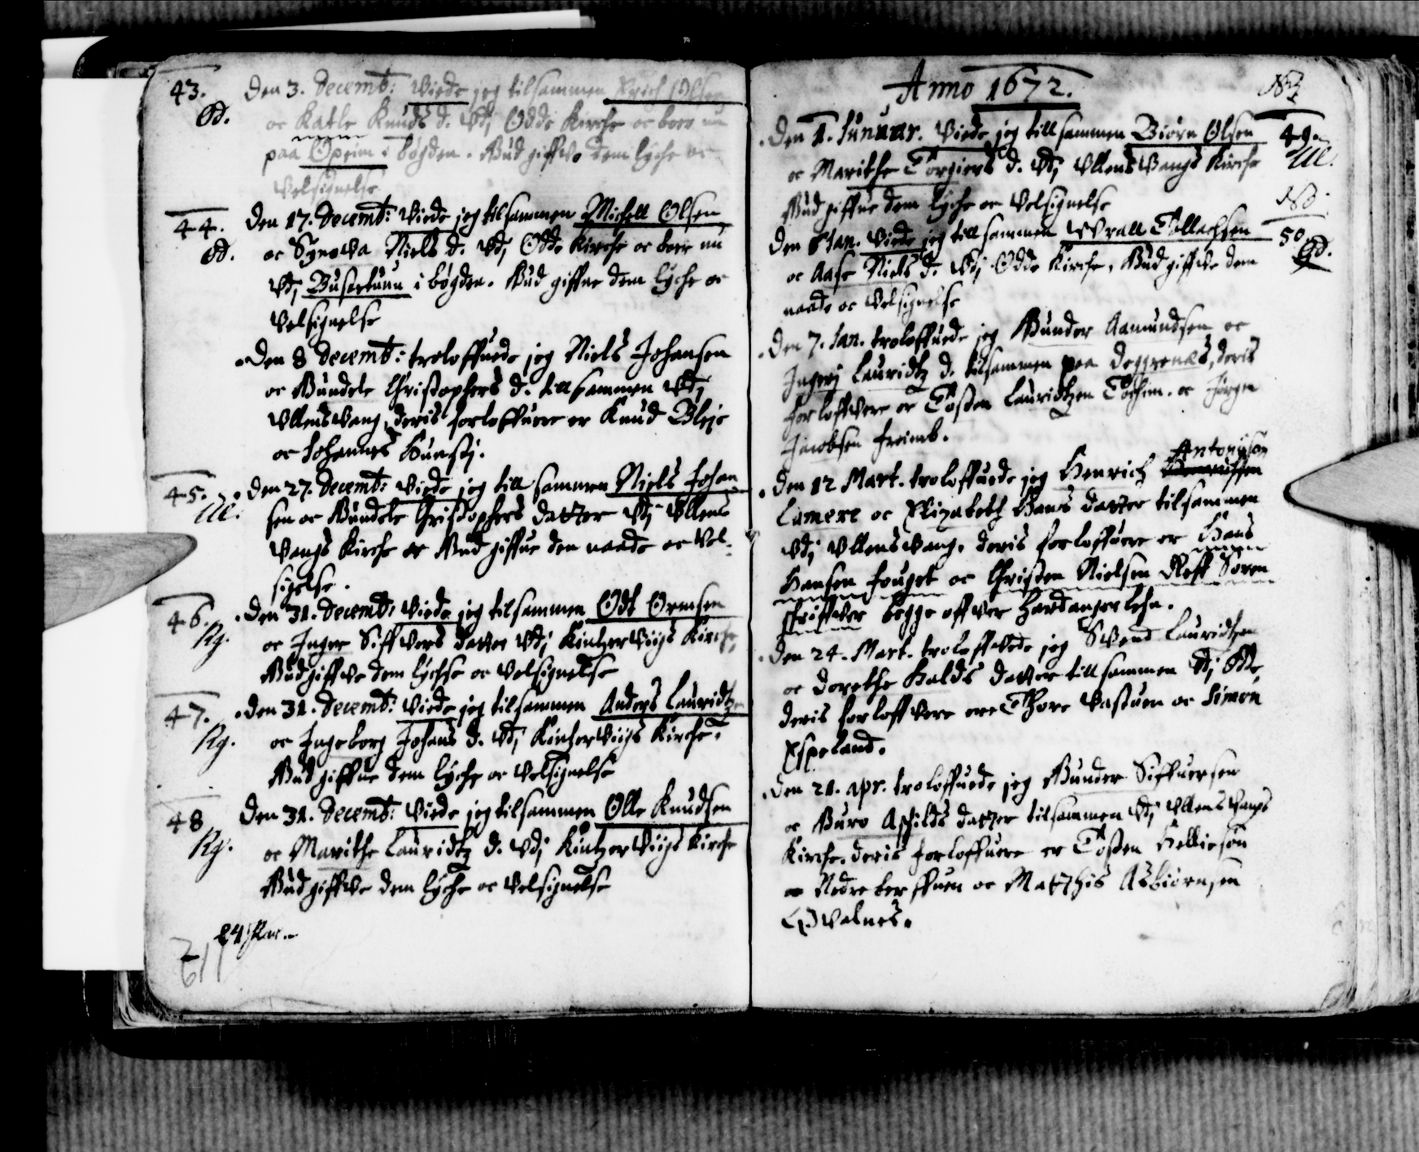 43. Den 3. Decemb: Viede jeg tilsammen Erich Olsen
Od. oc Katle Knuds d. vdj Odde Kirche oc boer nu
paa Opeim i bøgden. Gud giffve dem lyche oc
Velsignelse
44. Den 17. Decemb: Viede jeg tilsammen Michell Olsen
Od. oc Synøva Niels d. vdj Odde Kirche oc boer nu
vdj Busertuun i bøgden. Gud giffue dem lyche oc
Velsignelse
Den 8 Decemb: troloffuede jeg Niels Johansen
oc Gundele Christophers d. till sammen vdj
Vllensvang, deris forloffuere er Knud Bleje
oc Johannes
45. Den 27. Decemb: Viede jeg till sammen Niels Johan
Ull. sen oc Gundele Christophers datter vdj Vllens
vangs Kirche oc Gud giffue den naade oc Vel-
signelse.
46. Den 31. Decemb: Viede jeg tilsammen Odt Ormsen
Kj. oc Inger Siffvers datter vdj Kintzerviigs Kirche,
Gud giffve dem lyche oc Velsignelse
47. Den 31. Decemb: Viede jeg tilsammen Anders Lauridtz
Kj. oc Ingeborg Johans d. vdj Kintzerviigs Kirche,
Gud giffue dem lyche oc Velsignelse
48 Den 31. Decemb: Viede jeg tilsammen Olle Knudsen
Kj. oc Marithe Lauridtz d. vdj Kintzerviigs Kirche
Gud giffve dem lyche oc Velsignelse
24 Par.
Anno 1672.
Den 1. Januar. Viede jeg till sammen Biørn Olsen 49.
oc Marithe Torgiers d. vdj Vllensvangs Kirche Ull.
Gud giffue dem lyche oc Velsignelse
Den 6 Jan. Viede jeg till sammen Tollachsen 50
oc Aase Niels d. vdj Odde Kirche, Gud giffve dem Od.
naade oc Velsignelse
Den 7. Jan. troloffuede jeg Gunder Aamundsen oc
Ingerj Lauridtz d. tilsammen paa Deggrenæs, deris
forloffvere er Tosten Lauridtzen oc Jørgen
Jacobsen
Den 12 Mart. troloffuede jeg Henrich Antonijson
Lamere oc Elizabeth Hans datter tilsammen
vdj Vllensvang, deris forloffuere er Hans
Hansen fouget oc Christen Nielsen Søren
schriffver begge offver Hardanger lehn.
Den 24. Mart. troloffvede jeg Svend Lauridtzen
oc Dorethe Halds datter till sammen vdj Odde,
deris forloffvere ere Thore Vastuen oc Simon
Espeland.
Den 21. Apr. troloffuede jeg Gunder Siffuersen
oc Guro Aschilds datter tilsammen vdj Vllensvangs
Kirche. deris forloffuere er Tosten Helliesøn
Nedre oc Matthis Asbiørnsen
Qvalnes.